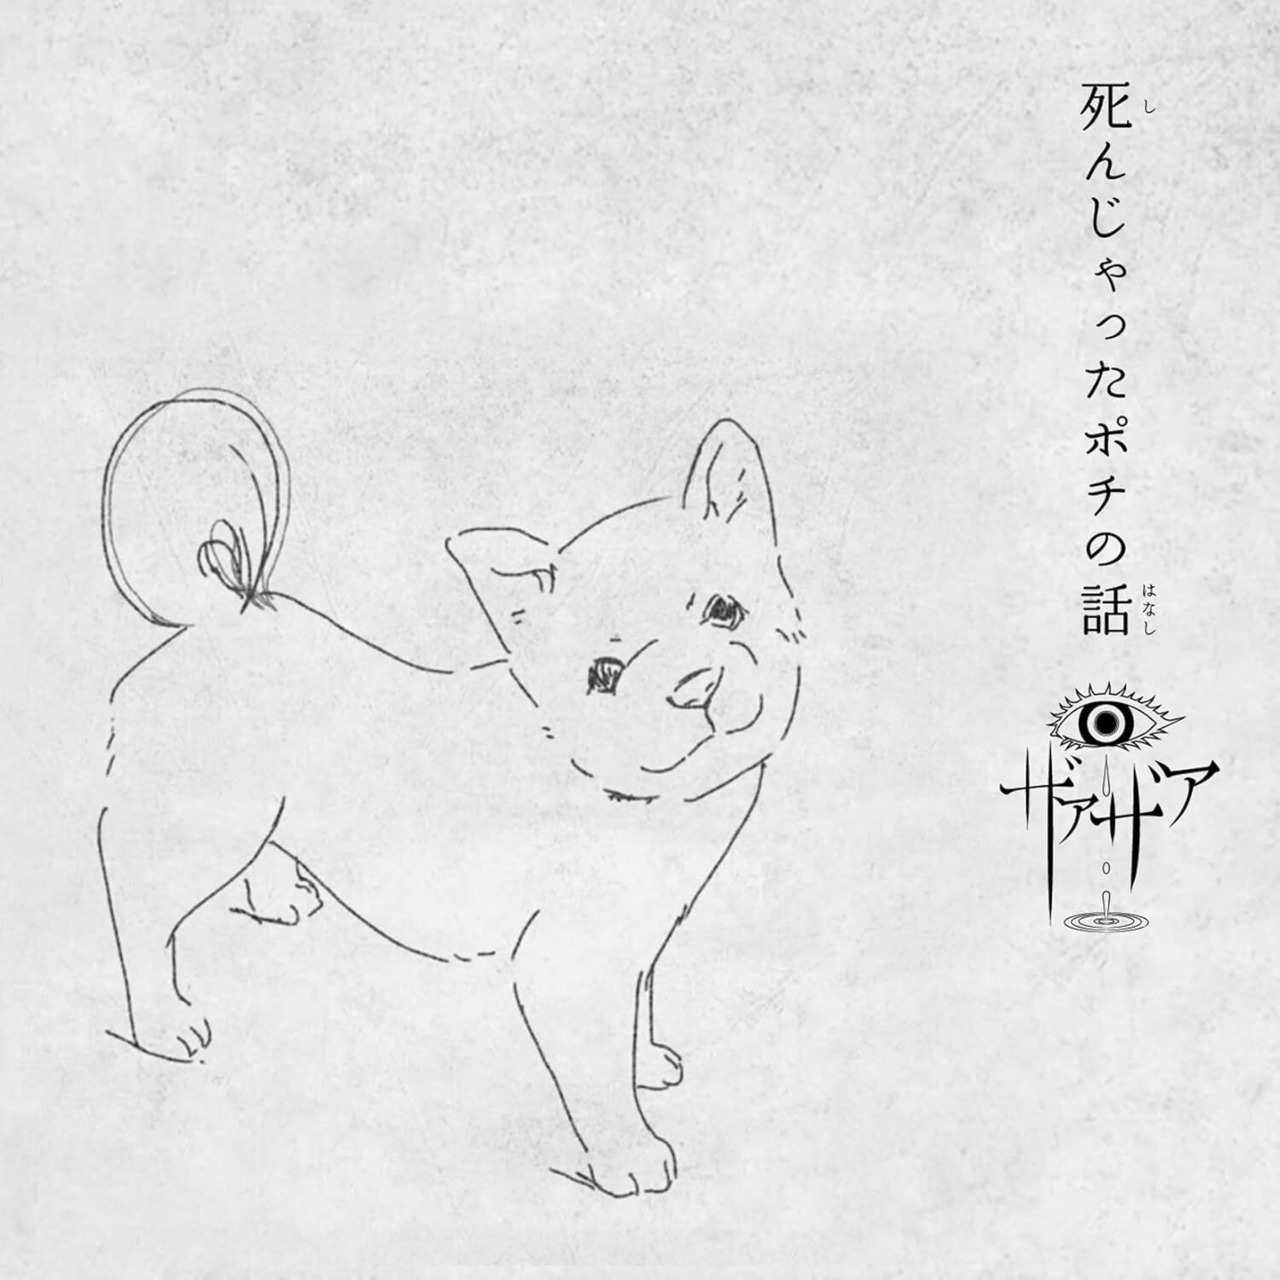 死んじゃったポチの話
し
はなし
ザァザァ